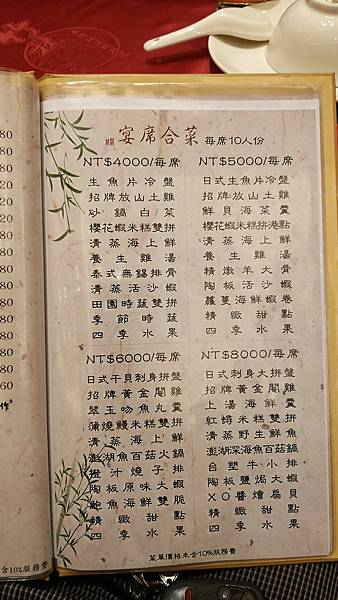 宴席合菜 每席10人份
NT$4000/每席
生魚片冷盤
招牌放山土雞
砂鍋白菜
櫻花蝦米糕雙拼
清蒸海上鮮
養生雞湯
泰式無錫排骨
清蒸活沙蝦
田園時蔬雙拼
季節時蔬
四季水果
NT$5000/每席
日式生魚片冷盤
招牌放山土雞
鮮貝海菜羹
櫻花蝦米糕拼港點
清蒸海上鮮
養生雞湯
精燉羊大骨
陶板活沙蝦
蘿蔓海鮮蝦卷
精緻甜點
四季水果
NT$6000/每席
日式干貝刺身大拼盤
招牌黃金閹雞
翠玉吻魚丸羹
蒲燒鰻米糕雙拼
清蒸海上鮮
澎湖魚百菇火鍋
橙汁燒子排
陶板原味大蝦
鮑魚海鮮雙脆
精緻甜點
四季水果
NT$8000/每席
日式刺身大拼盤
招牌黃金閹雞
上湯海鮮羹
紅蟳米糕雙拼
清蒸野生鮮魚
澎湖深海魚百菇鍋
台塑牛小排
陶板鹽焗大蝦
XO醬燴扇貝
精緻甜點
四季水果
菜單價格未含10%服務費
80
80
20
20
80
80
80
80
80
60
作
含10%服務費